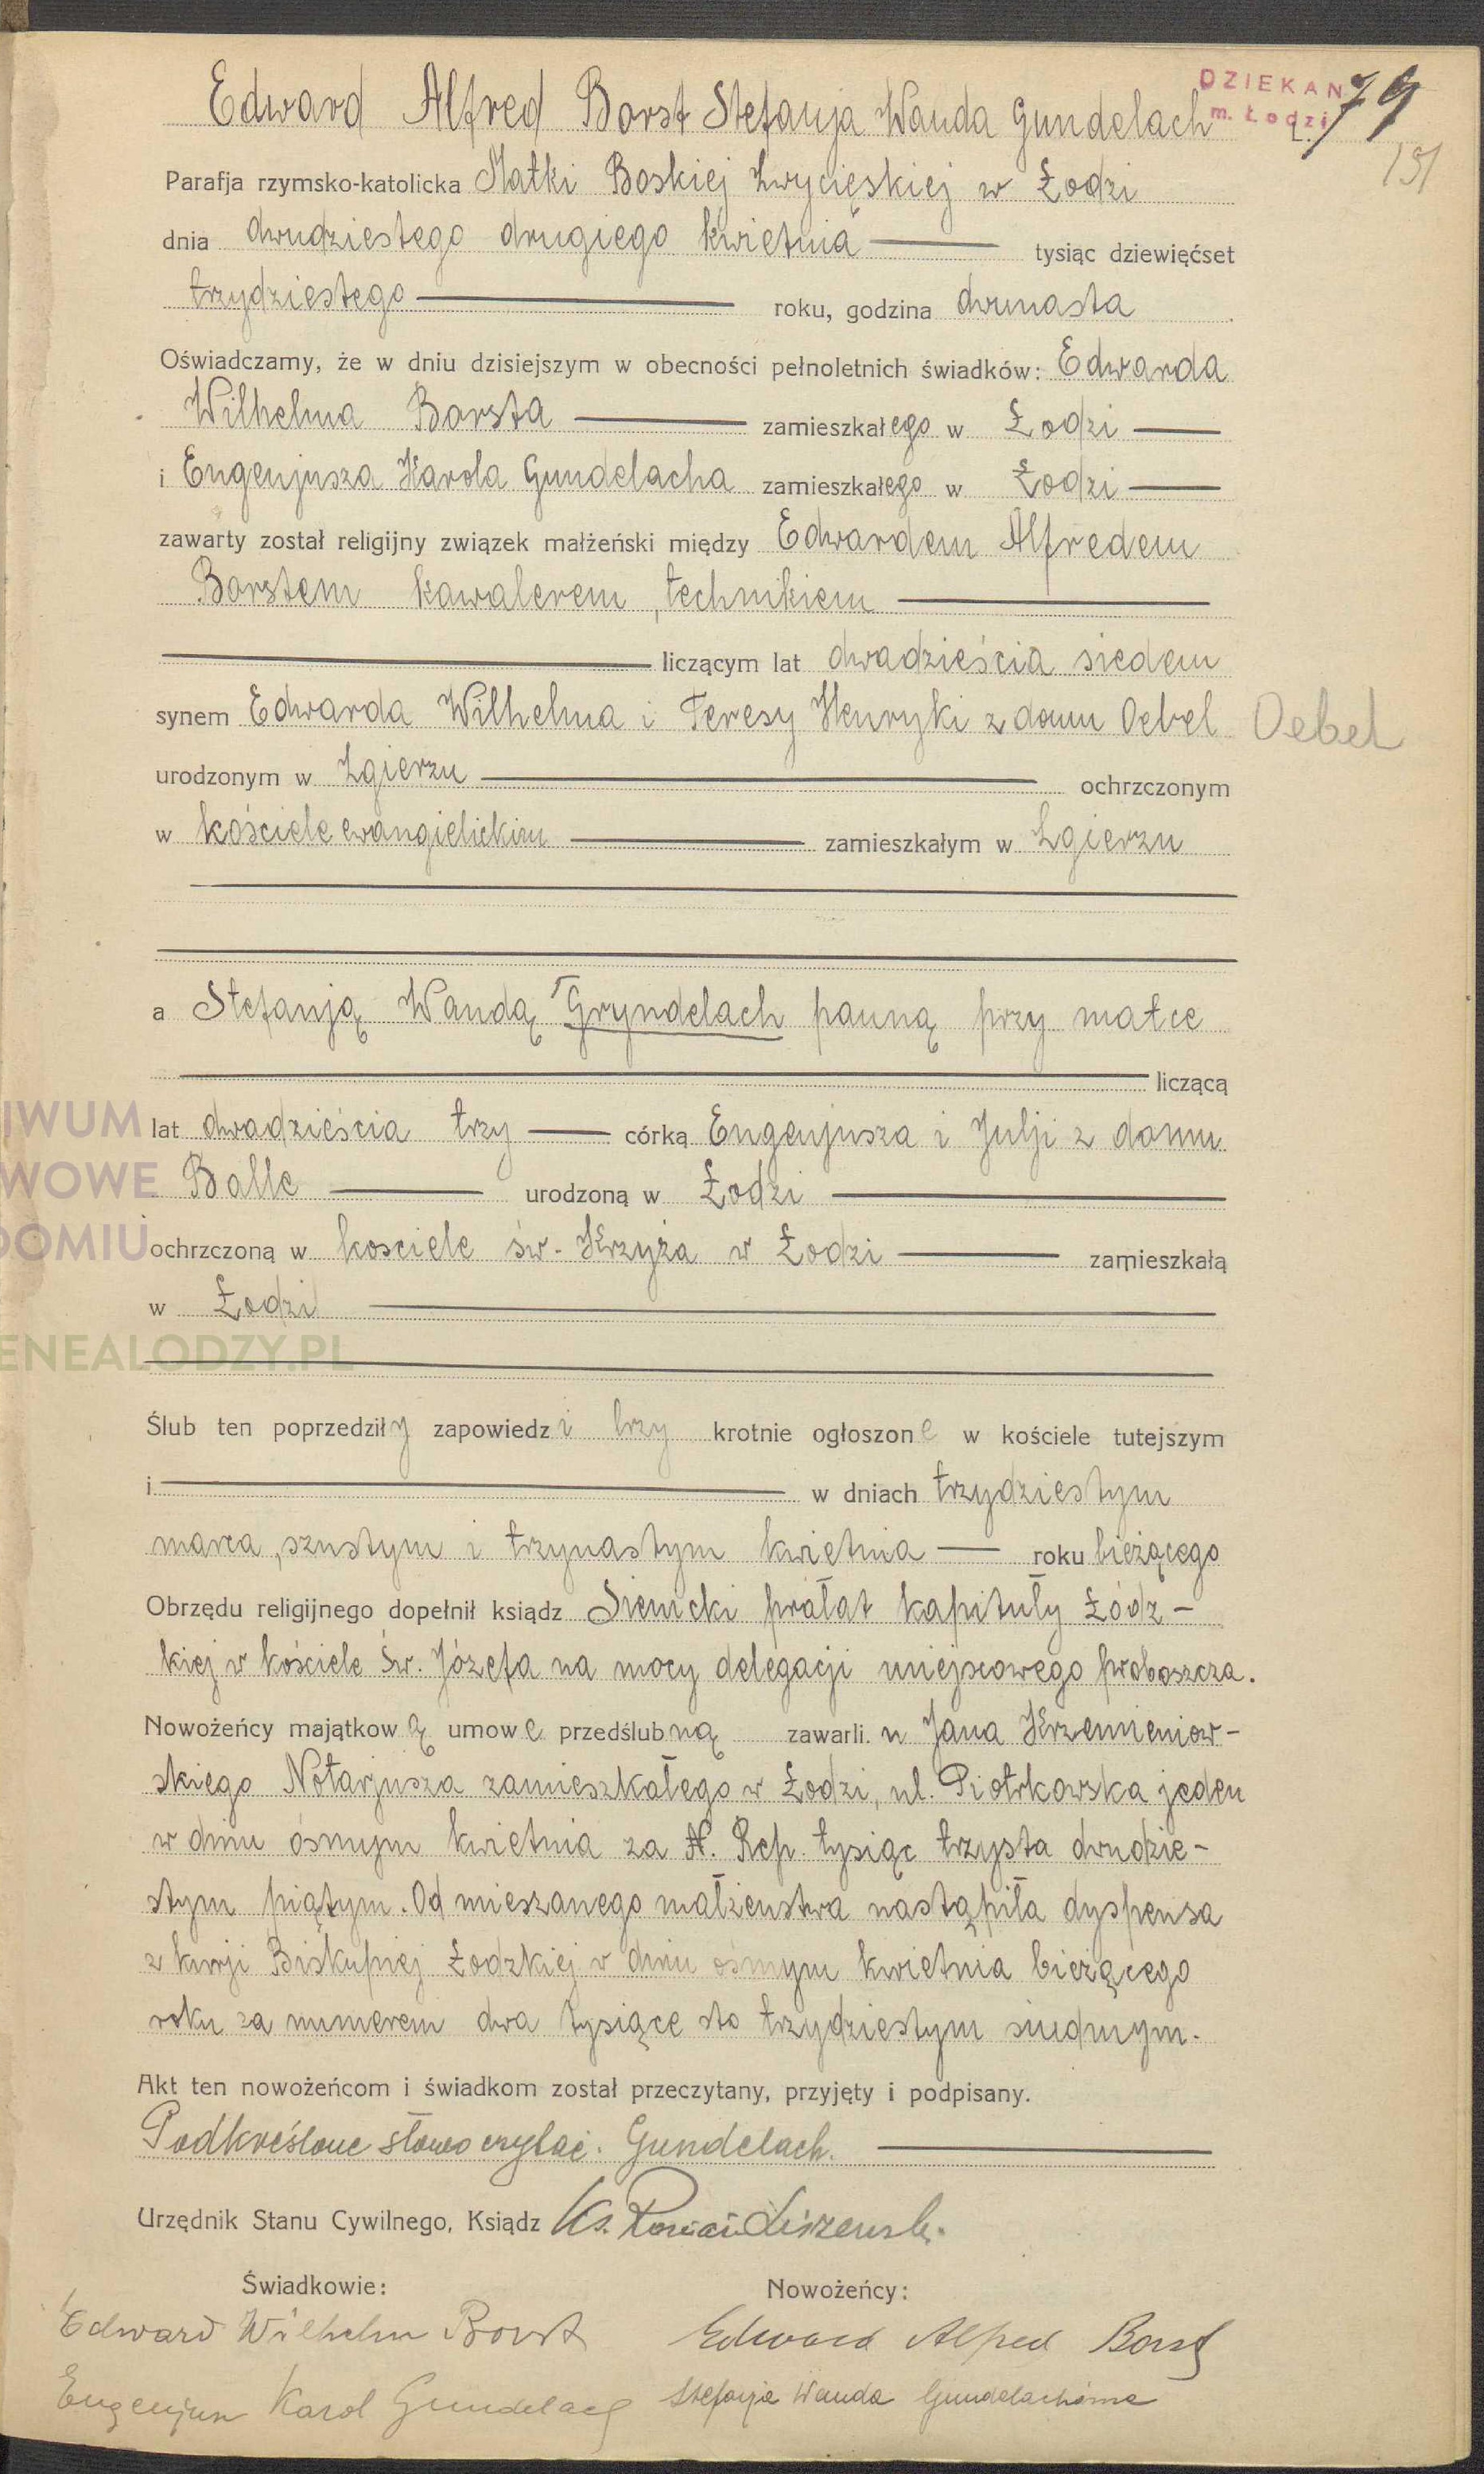 DZIEKAN
m. Łodzi
Edward Alfred Borst Stefanja Wanda Gundelach L. 79
131
Parafja rzymsko-katolicka Matki Boskiej Zwycięskiej w Łodzi
dnia dwudziestego drugiego kwietnia tysiąc dziewięćset
trzydziestego roku, godzina dwunasta
Oświadczamy, że w dniu dzisiejszym w obecności pełnoletnich świadków: Edwarda
Wilhelma Borsta zamieszkałego w Łodzi
i Eugenjusza Karola Gundelacha zamieszkałego w Łodzi
zawarty został religijny związek małżeński między Edwardem Alfredem
Borstem kawalerem, technikiem
liczącym lat dwadzieścia siedem
synem Edwarda Wilhelma i Teresy Henryki z domu Oebel Oebel
urodzonym w Zgierzu ochrzczonym
w kościele ewangielickim zamieszkałym w Zgierzu
a Stefanją Wandą Gryndelach panną przy matce
liczącą
lat dwadzieścia trzy córką Eugenjusza i Julji z domu
Balle urodzoną w Łodzi
ochrzczoną w kosciele św. Krzyża w Łodzi zamieszkałą
w Łodzi
IWUM
WOWE
DOMIU
ENEALODZY.PL
Ślub ten poprzedziły zapowiedzi trzy krotnie ogłoszone w kościele tutejszym
i w dniach trzydziestym
marca, szustym i trzynastym kwietnia roku bieżącego
Obrzędu religijnego dopełnił ksiądz Siemicki prałat kapituły Łódz-
kiej w kościele Św. Józefa na mocy delegacji miejscowego proboszcza.
Nowożeńcy majątkową umowe przedślubną zawarli. u Jana Krzemieniow-
skiego Notarjusza zamieszkałego w Łodzi, ul. Piotrkowska jeden
w dniu ósmym kwietnia za N. Rep. tysiąc trzysta dwudzie-
stym piątym. Od mieszanego małżenstwa nastąpiła dyspensa
z kurji Biskupiej Łodzkiej w dniu ósmym kwietnia bieżącego
roku za numerem dwa tysiące sto trzydziestym siudmym.
Akt ten nowożeńcom i świadkom został przeczytany, przyjęty i podpisany.
Podkreślone słowo czytać. Gundelach.
Urzędnik Stanu Cywilnego, Ksiądz Ks. Roman
Świadkowie: Nowożeńcy:
Edward Wilhelm Borst Edward Alfred Borst
Eugenjusz Karol Gundelach Stefanja Wanda Gundelachówna